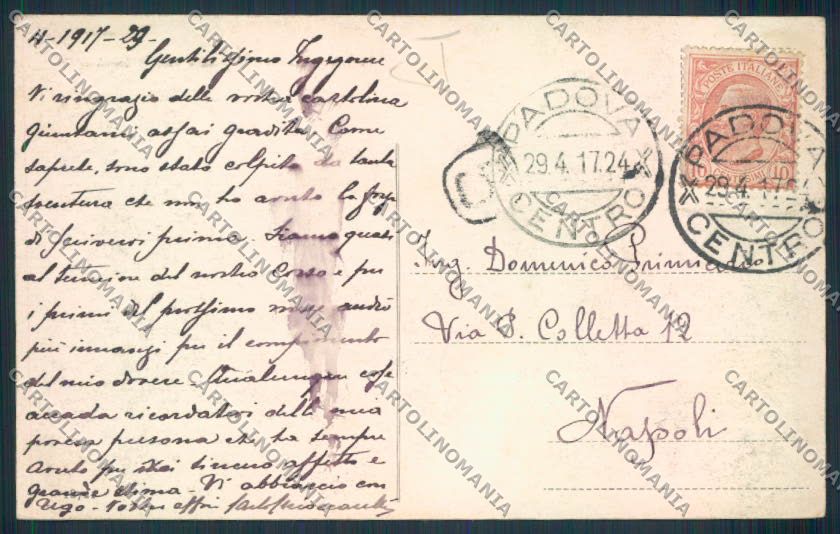 4-1917-29-
Gentilissimo Ingegnere
Vi ringrazio della vostra cartolina
giuntami assai gradita. Come
sapete, sono stato colpito da tanta
sventura che non ho avuto la forza
di scrivervi prima. Siamo quasi
al termine del nostro Corso e per
i primi del prossimo mese andrò
più innanzi per il compimento
del mio dovere. Qualunque cosa
accada ricordatevi della mia
povera persona che ha sempre
avuto per Voi sincero affetto e
grande stima. Vi abbraccio con
Ugo. Vostro
POSTE ITALIANE
10
PADOVA
29.4.17.24
CENTRO
PADOVA
29.4.17
CENTRO
Ing. Domenico
Via P. Colletta 12
Napoli
CARTOLINOMANIA